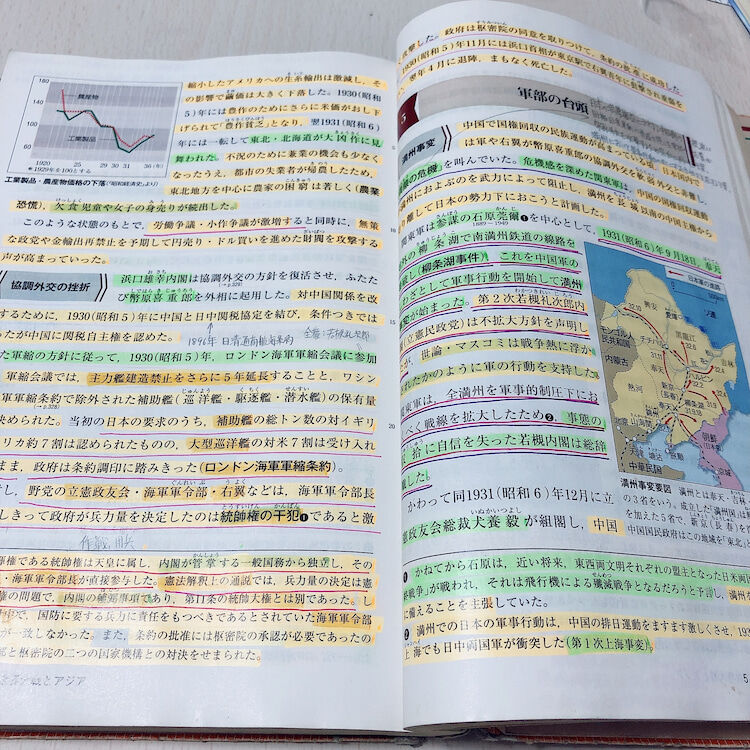 180
140
100
60
農産物
工業製品
1920
25
29
30
31
36(年)
*1929年を100とする
工業製品・農産物価格の下落(『昭和経済史』より)
縮小したアメリカへの生糸輸出は激減し、そ
の影響で繭価は大きく下落した。1930(昭和
5)年には豊作のためにさらに米価がおし下
げられて「豊作貧乏」となり、翌1931(昭和6)
年には一転して東北・北海道が大凶作に見
舞われた。不況のために兼業の機会も少なく
なったうえ、都市の失業者が帰農したため、
東北地方を中心に農家の困窮は著しく(農業
恐慌)、欠食児童や女子の身売りが続出した。
このような状態のもとで、労働争議・小作争議が激増すると同時に、無策
な政党や金輸出再禁止を予期して円売り・ドル買いを進めた財閥を攻撃する
声が高まっていった。
協調外交の挫折
浜口雄幸内閣は協調外交の方針を復活させ、ふたた
び幣原喜重郎を外相に起用した。対中国関係を改
するために、1930(昭和5)年に中国と日中関税協定を結び、条件つきでは
ったが中国に関税自主権を認めた。
た軍縮の方針に従って、1930(昭和5)年、ロンドン海軍軍縮会議に参加
軍縮会議では、主力艦建造禁止をさらに5年延長することと、ワシン
軍縮条約で除外された補助艦(巡洋艦・駆逐艦・潜水艦)の保有量
決められた。当初の日本の要求のうち、補助艦の総トン数の対イギリ
リカ約7割は認められたものの、大型巡洋艦の対米7割は受け入れ
まま、政府は条約調印に踏みきった(ロンドン海軍軍縮条約)。
し、野党の立憲政友会・海軍軍令部・右翼などは、海軍軍令部長
しきって政府が兵力量を決定したのは統帥権の干犯❶であると激
権である統帥権は天皇に属し、内閣が管掌する一般国務から独立し、その
・海軍軍令部長が直接参与した。憲法解釈上の通説では、兵力量の決定は憲
権の問題で、内閣の輔弼事項であり、第11条の統帥大権とは別であった。し
中で、国防に要する兵力に責任をもつべきであるとされていた海軍軍令部
が一致しなかった。また、条約の批准には枢密院の承認が必要であったの
部と枢密院の二つの国家機構との対決をせまられた。
とアジア
攻撃した。政府は枢密院の同意を取りつけて、条約の批准に成功した
1930(昭和5)年11月には浜口首相が東京駅で右翼青年に狙撃され重傷を
、翌年4月に退陣、まもなく死亡した。
5
軍部の台頭
満州事変
中国で国権回収の民族運動が高まっている頃、日本国内で
は軍や右翼が幣原喜重郎の協調外交を軟弱外交と非難し、
の危機」を叫んでいた。危機感を深めた関東軍は、中国の国権回収運動
満州におよぶのを武力によって阻止し、満州を長城以南の中国主権から
離して日本の勢力下におこうと計画した。
関東軍は、参謀の石原莞爾❶を中心として、
1931(昭和6)年9月18日、奉天
外の柳条湖で南満州鉄道の線路を
し(柳条湖事件)、これを中国軍の
わざとして軍事行動を開始して満州
変が始まった。第2次若槻礼次郎内
(立憲民政党)は不拡大方針を声明し
が、世論・マスコミは戦争熱に浮か
れたかのように軍の行動を支持した。
東軍は、全満州を軍事的制圧下にお
べく戦線を拡大したため❷、事態の
拾に自信を失った若槻内閣は総辞
した。
かわって同1931(昭和6)年12月に立
憲政友会総裁犬養毅が組閣し、中国
日本軍の進路
満州事変要図
❶ かねてから石原は、近い将来、東西両文明それぞれの盟主となった日米両国
終戦争」が戦われ、それは飛行機による殲滅戦争となるだろうと予言し、満州
に備えることを主張していた。
❷ 満州での日本の軍事行動は、中国の排日運動をますます激しくさせ、193
上海でも日中両国軍が衝突した(第1次上海事変)。